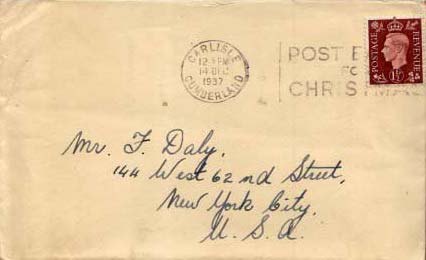 CARLISLE
12 PM
14 DEC
1937
CUMBERLAND
POST E
FO
CHRISTMAS
POSTAGE REVENUE
1½
Mr. F. Daly,
144 West 62nd Street,
New York City,
U. S. A.